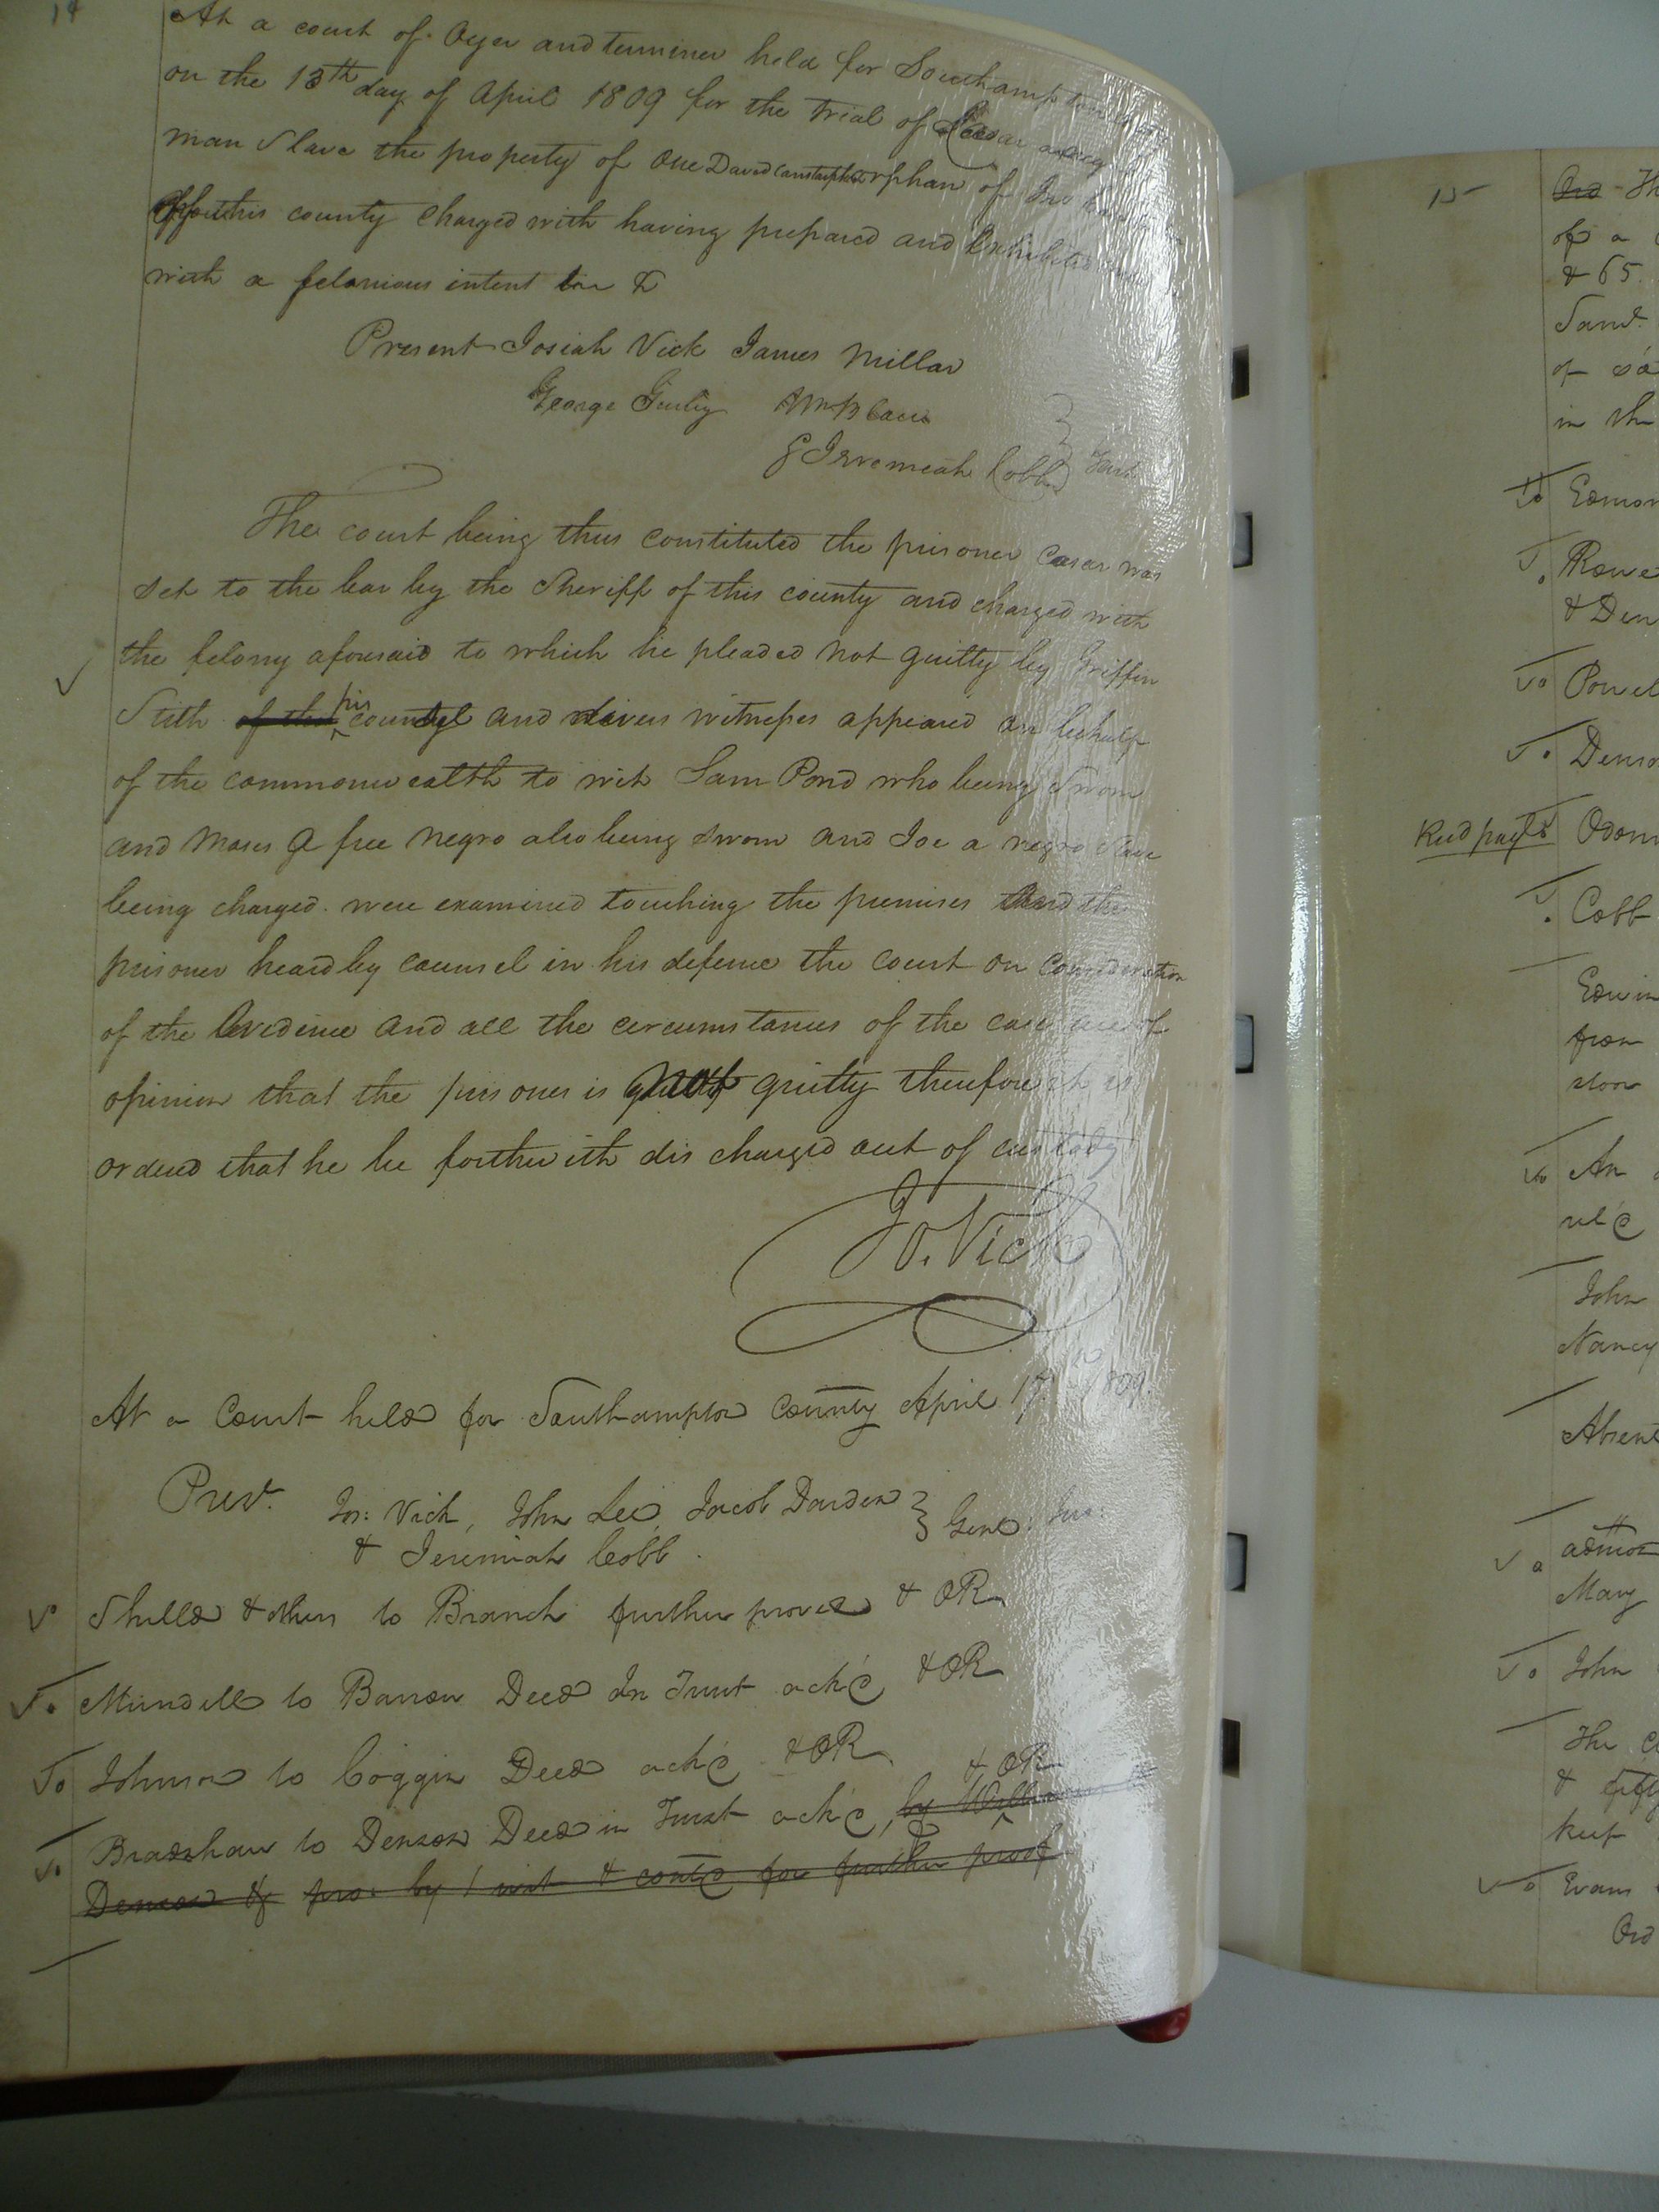 14
At a court of Oyer and terminer held for Southampton
on the 13th day of April 1809 for the trial of Ceasar a
man Slave the property of One David orphan of
this county charged with having prepared and Exhibited
with a felonious intent &
Present Josiah Vick James Millar
George Gurley Wm B
& Jerremeah Cobb } Gent
The court being thus constituted the prisoner Cæsar was
set to the bar by the Sheriff of this county and charged with
the felony aforesaid to which he pleaded not guilty by Griffin
Stith of this his counsel and divers witnesses appeared on behalf
of the commonwealth to wit Sam Pond who being Sworn
and Moses a free negro also being sworn and Joe a negro Slave
being charged were examined touching the premises and the
prisoner heard by counsel in his defence the court on consideration
of the Evidence and all the circumstances of the case are of
opinion that the prisoner is not guilty therefore it is
ordered that he be forthwith discharged out of custody
Jo. Vick
At a Court held for Southampton County April 17 1809
Prest.
Jos: Vick, John Lee, Jacob Darden } Gent.
& Jeremiah Cobb.
Shills & others to Branch further proved & OR
To Mundell to Barrow Deed In Trust ack'd & OR
To Johnson to Coggin Deed ack'd & OR
& OR
To Bradshaw to Denson Deed in Trust ack'd by
Denson & pro: by 1 wit & contd for further proof
15
Ord Th
of a
& 65.
Sand.
of
in the
to Edmon
To Rowe
& Den
To Powel
To Denso
Odom
To Cobb
Edwin
from
To An
John
Nancy
Absent
Mary
To John
The
& fifty
keep
To Evans
Ord